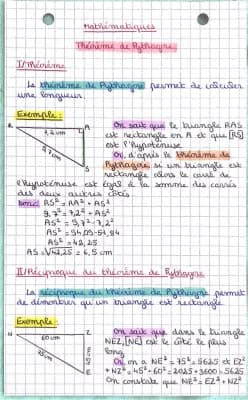 Mathématiques
Théorème de Pythagore
I/Théorème
Le théorème de Pythagore permet de calculer
une longueur.
Exemple :
R A
7,2 cm
9,7 cm
S
On sait que le triangle RAS
est rectangle en A et que [RS]
est l'hypoténuse
Or, d'après le théorème de
Pythagore, si un triangle est
rectangle alors le carré de
l'hypoténuse est égal à la somme des carrés
des deux autres côtés.
Donc: RS² = RA² + AS²
9,7² = 7,2² + AS²
AS² = 9,7² - 7,2²
AS² = 94,09 - 51,84
AS² = 42,25
AS = √42,25 = 6,5 cm
II/Réciproque du théorème de Pythagore
La réciproque du théorème de Pythagore permet
de démontrer qu'un triangle est rectangle.
Exemple:
N Z
60 cm
75 cm
E
On sait que dans le triangle
NEZ, [NE] est le côté le plus
long
Or on a NE² = 75² = 5625 et EZ²
+ NZ² = 45² + 60² = 2025 + 3600 = 5625
On constate que NE² = EZ² + NZ²